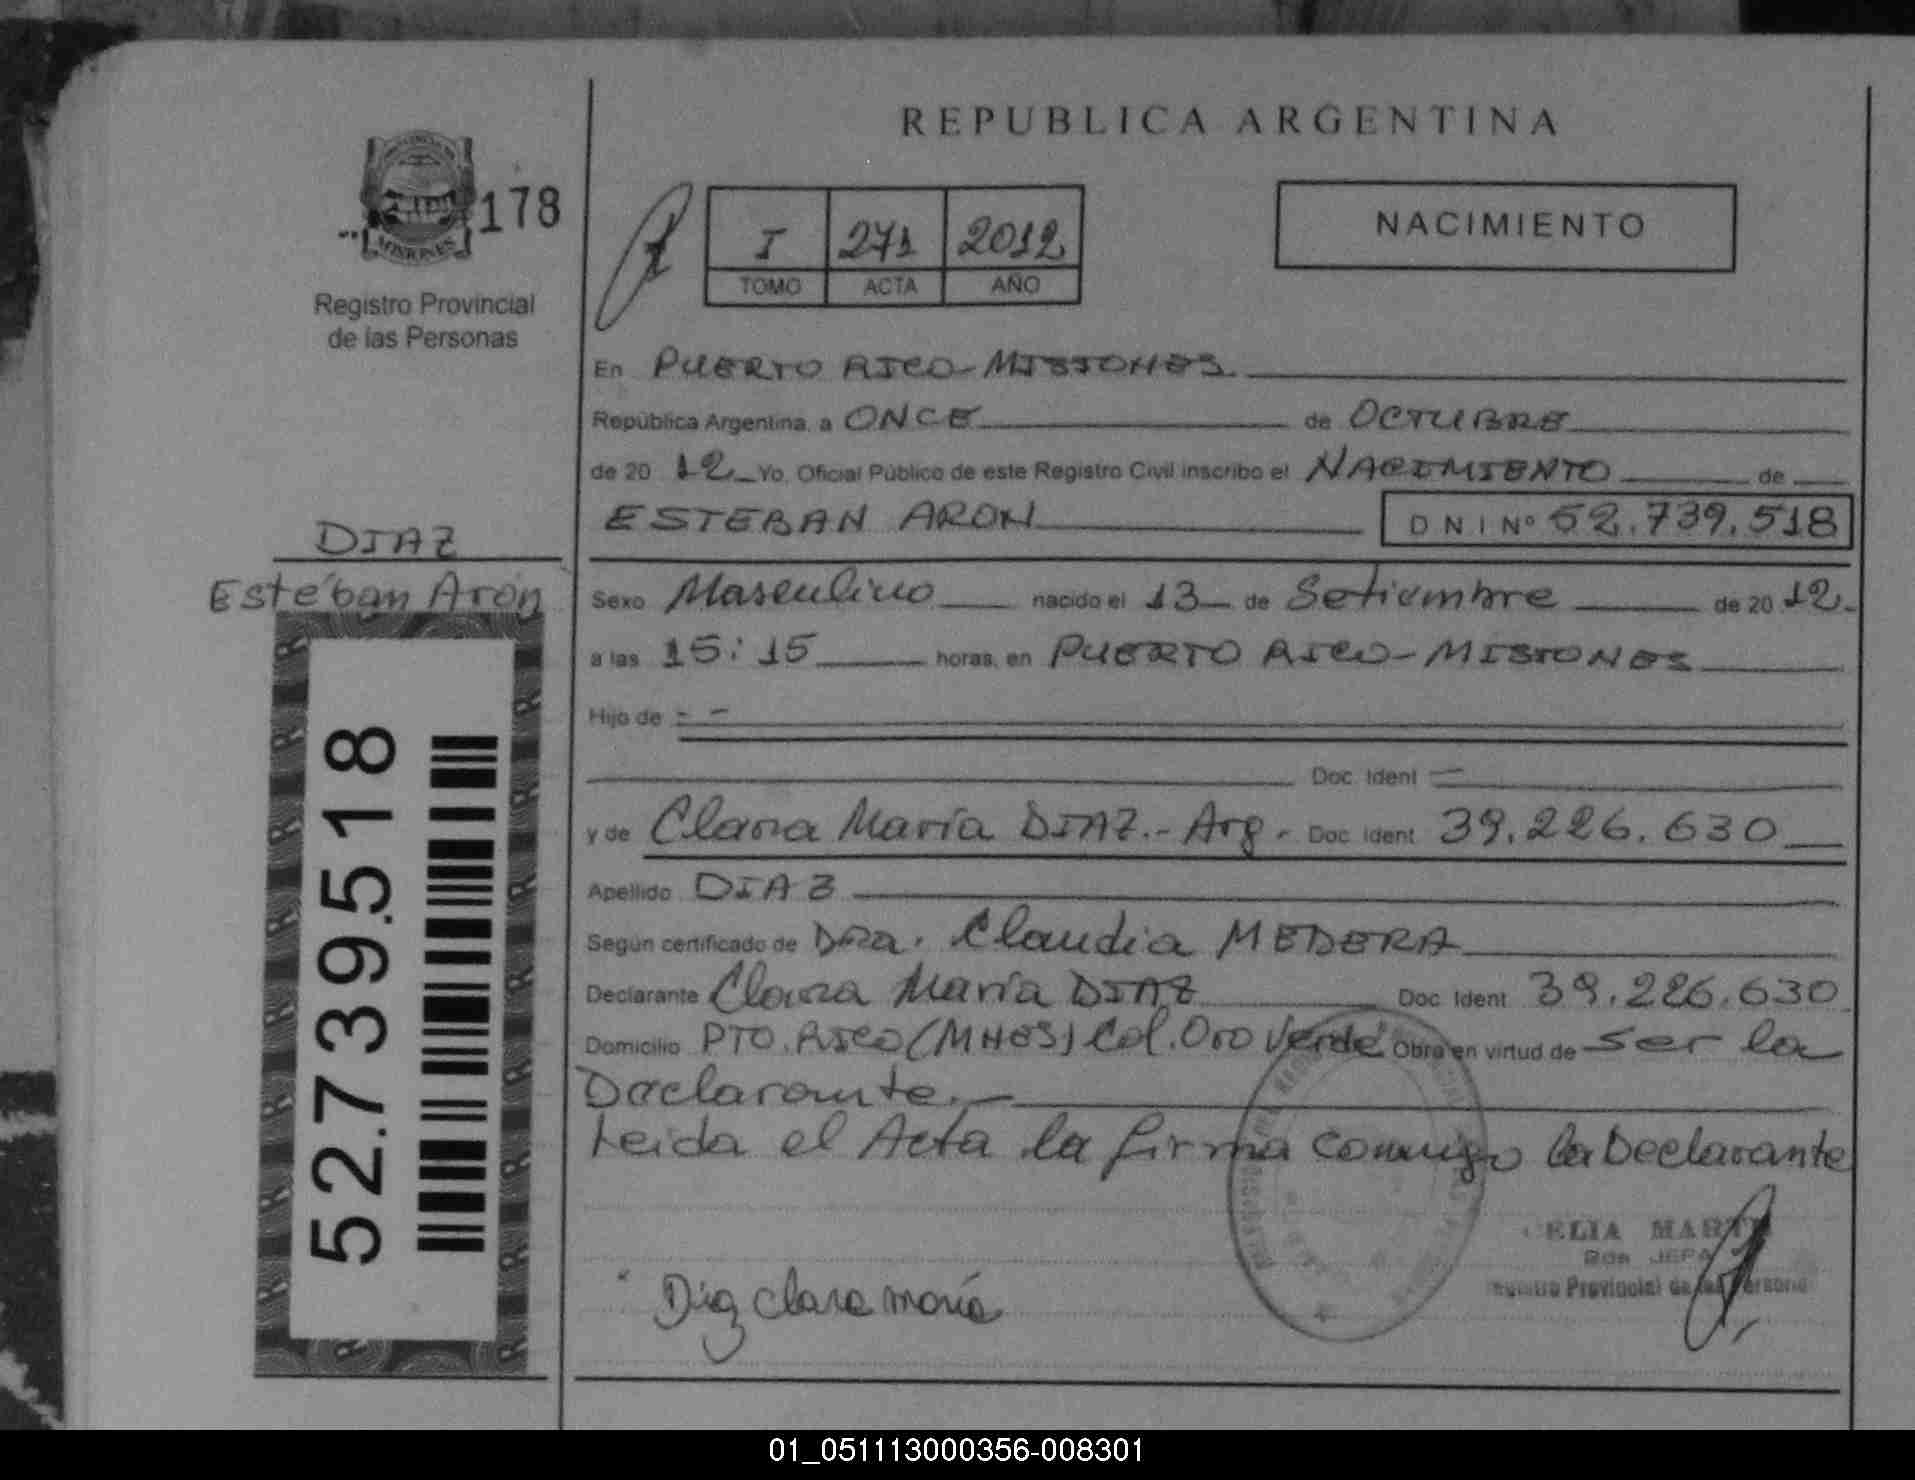 REPUBLICA ARGENTINA
MISIONES
178
Registro Provincial
de las Personas
I 271 2012
TOMO ACTA AÑO
NACIMIENTO
En PUERTO RICO-MISIONES
República Argentina, a ONCE de OCTUBRE
de 20 12 Yo, Oficial Público de este Registro Civil inscribo el NACIMIENTO de
ESTEBAN ARON DNI Nº 52.739.518
DIAZ
Esteban Arón
Sexo Masculino nacido el 13 de Setiembre de 20 12.-
a las 15:15 horas, en PUERTO RICO-MISIONES
Hijo de - -
Doc. Ident. —
y de Clara María DIAZ.- Arg.- Doc. Ident. 39.226.630
Apellido DIAZ
Según certificado de Dra. Claudia MEDERA
Declarante Clara María DIAZ Doc. Ident. 39.226.630
Domicilio PTO. RICO (MNES) Col. Oro Verde Obra en virtud de ser la
Declarante.-
Leida el Acta la firma conmigo la Declarante
52.739.518
Diaz clara maría
CELIA MART
JEFA
Registro Provincial de las Persona
01_051113000356-008301